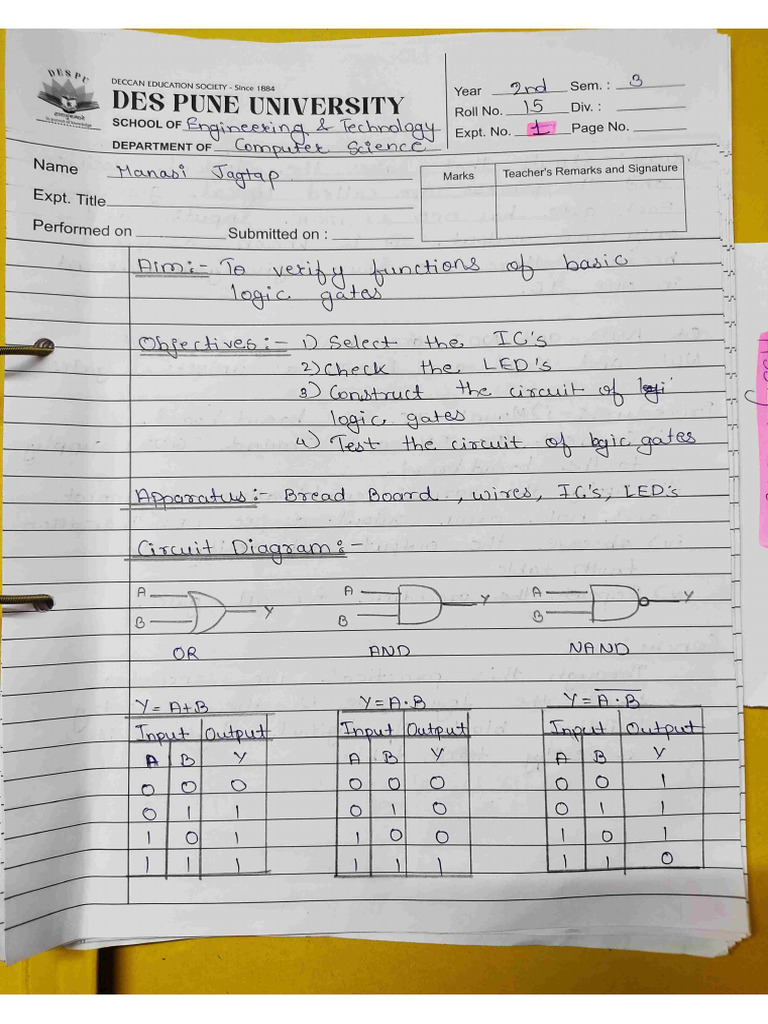 DES PU
DECCAN EDUCATION SOCIETY - Since 1884
DES PUNE UNIVERSITY
SCHOOL OF Engineering & Technology
DEPARTMENT OF Computer Science
Year 2nd Sem. : 3
Roll No. 15 Div. :
Expt. No. 1 Page No.
Name Manasi Jagtap
Expt. Title
Performed on Submitted on :
Marks Teacher's Remarks and Signature
Aim:- To verify functions of basic
logic gates
Objectives:- 1) Select the IC's
2) Check the LED's
3) Construct the circuit of
logic gates
4) Test the circuit of logic gates
Apparatus:- Bread Board, wires, IC's, LED's
Circuit Diagram:-
A A A
Y Y Y
B B B
OR AND NAND
Y = A+B Y = A·B Y = \overline{A·B}
Input Output Input Output Input Output
A B Y A B Y A B Y
0 0 0 0 0 0 0 0 1
0 1 1 0 1 0 0 1 1
1 0 1 1 0 0 1 0 1
1 1 1 1 1 1 1 1 0